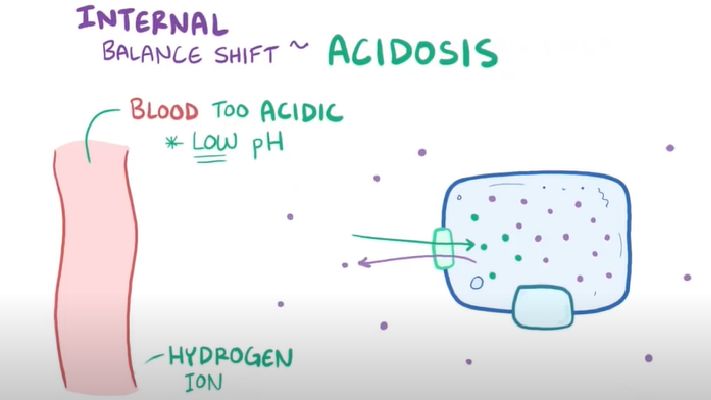 INTERNAL
BALANCE SHIFT ~ ACIDOSIS
BLOOD TOO ACIDIC
* LOW pH
HYDROGEN
ION